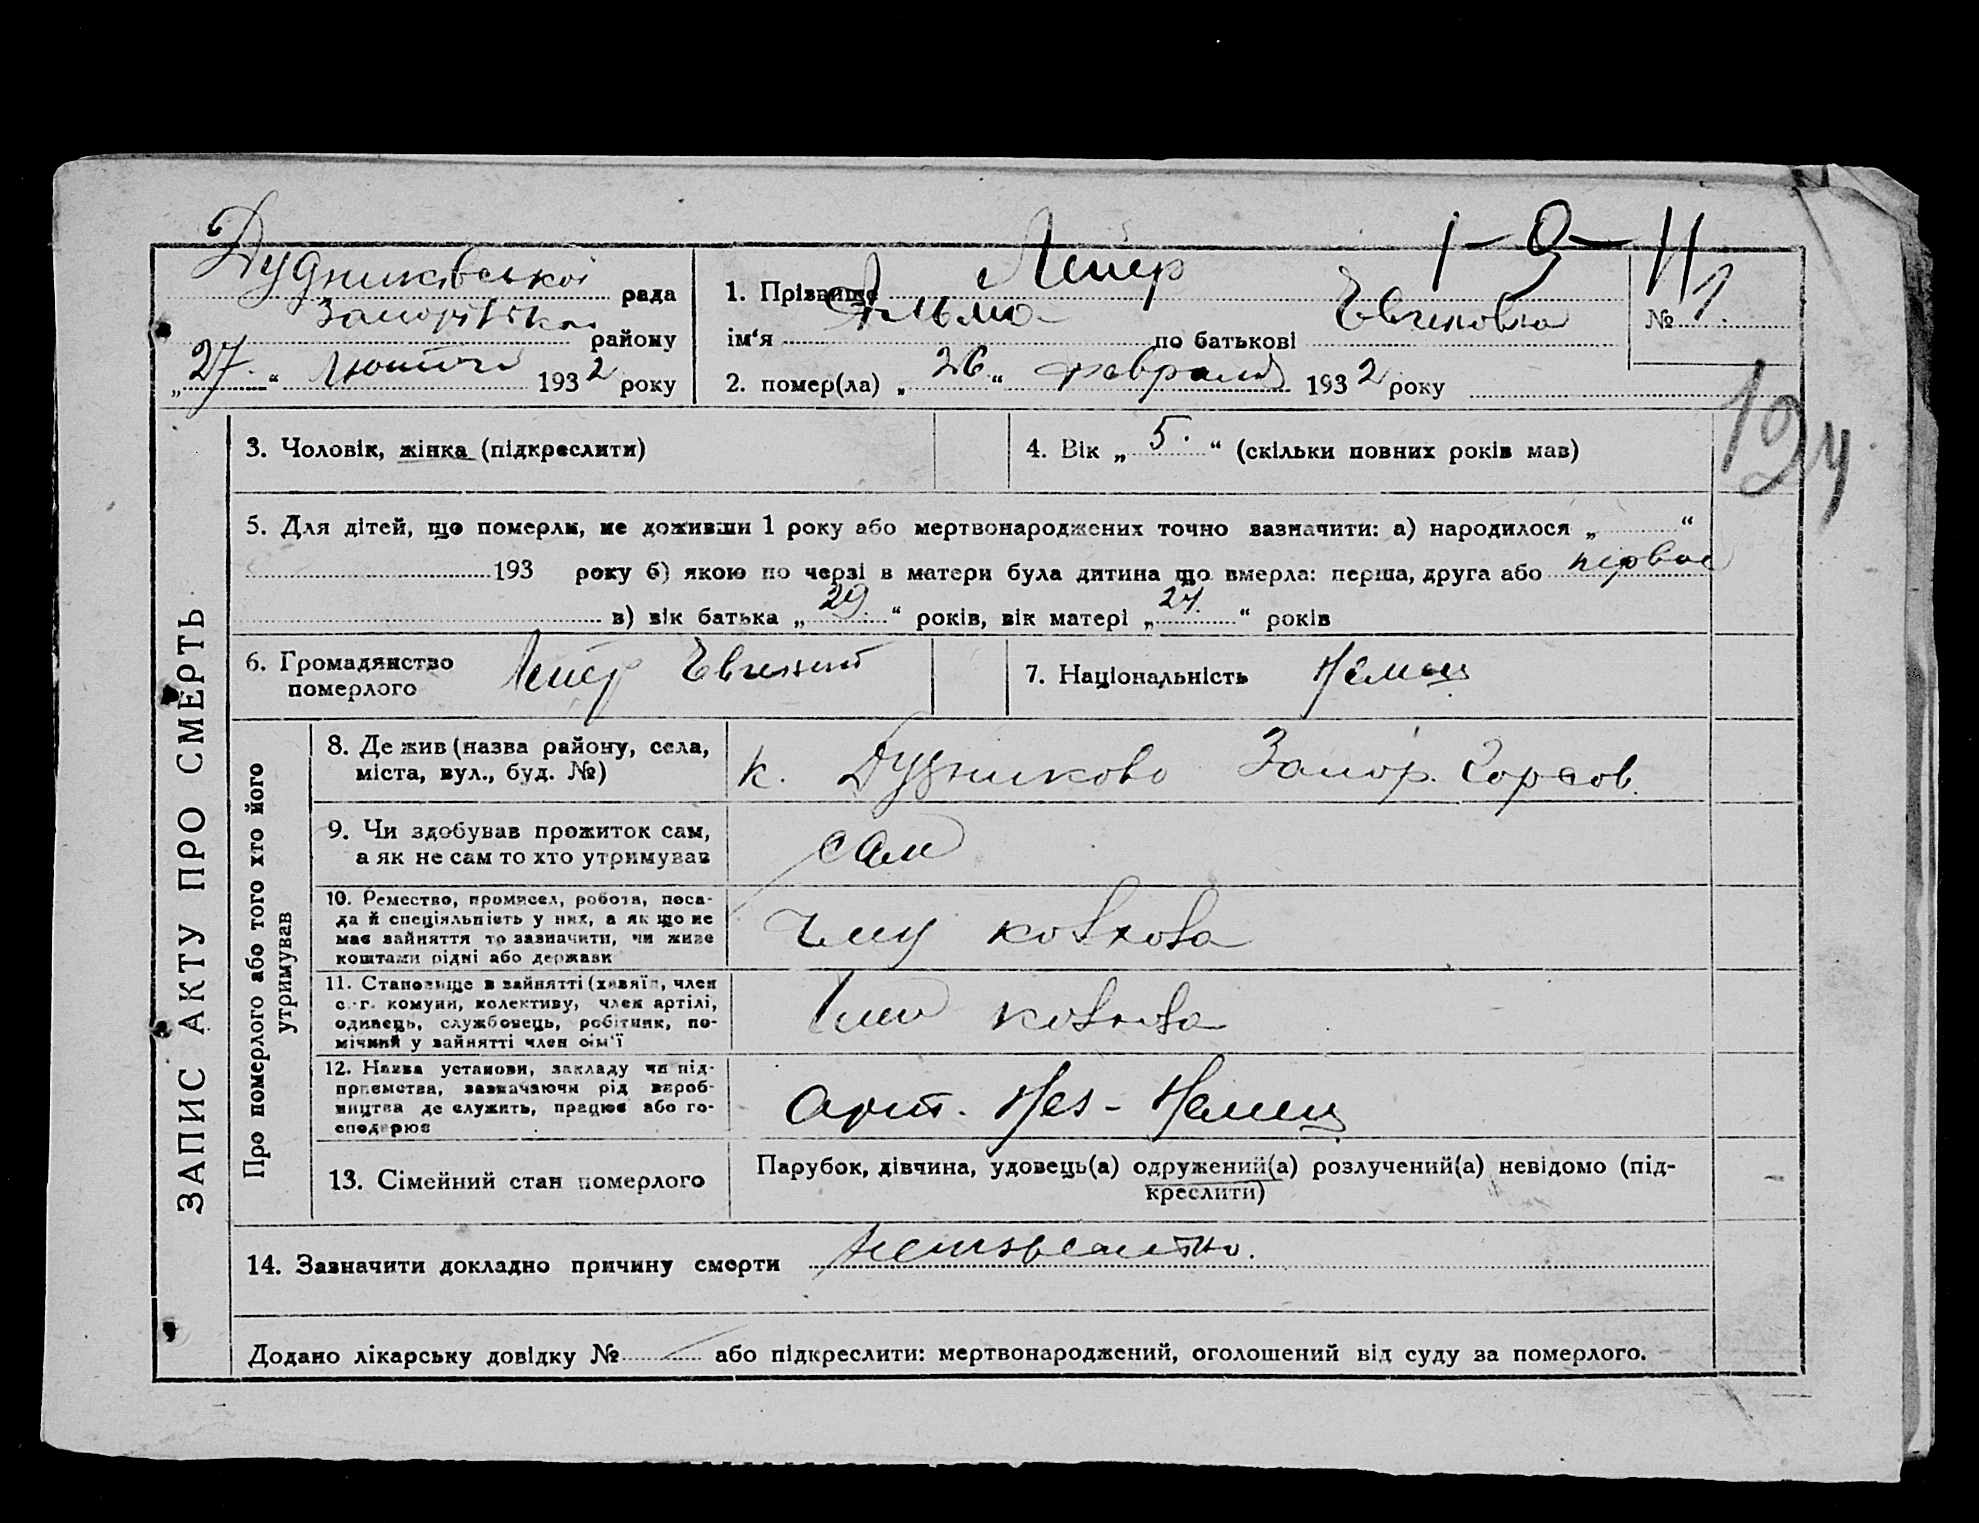 1-9-11
Дудниківської рада
Запорізькой району
„27.“ лютого 1932 року
1. Прізвище Лепер
ім‘я Альма по батькові Евгеновна
№ 1.
2. помер(ла) „26“ февраля 1932 року
194
ЗАПИС АКТУ ПРО СМЕРТЬ
3. Чоловік, жінка (підкреслити)
4. Вік „5.“ (скільки повних років мав)
5. Для дітей, що померли, не доживши 1 року або мертвонароджених точно зазначити: а) народилося „ “
193 року б) якою по черзі в матери була дитина що вмерла: перша, друга або первое
в) вік батька „29.“ років, вік матері „27.“ років
6. Громадянство
померлого
Лепер Евгений
7. Національність Немец
Про померлого або того хто його
утримував
8. Де жив (назва району, села,
міста, вул., буд. №)
к. Дудниково Запор. Горсов.
9. Чи здобував прожиток сам,
а як не сам то хто утримував
сам
10. Ремество, промисел, робота, поса-
да й спеціяльність у них, а як що не
має зайняття то зазначити, чи живе
коштами рідні або держави
член колхоза
11. Становище в зайнятті (хазяїн, член
с.-г. комуни, колективу, член артілі,
одинець, службовець, робітник, по-
мічний у зайнятті член сім‘ї
член колхоза
12. Назва установи, закладу чи під-
приємства, зазначаючи рід вироб-
ництва де служить, працює або го-
сподарює
Арт. Нез-Немец
13. Сімейний стан померлого
Парубок, дівчина, удовець(а) одружений(а) розлучений(а) невідомо (під-
креслити)
14. Зазначити докладно причину смерти неизвестно.
Додано лікарську довідку № або підкреслити: мертвонароджений, оголошений від суду за померлого.